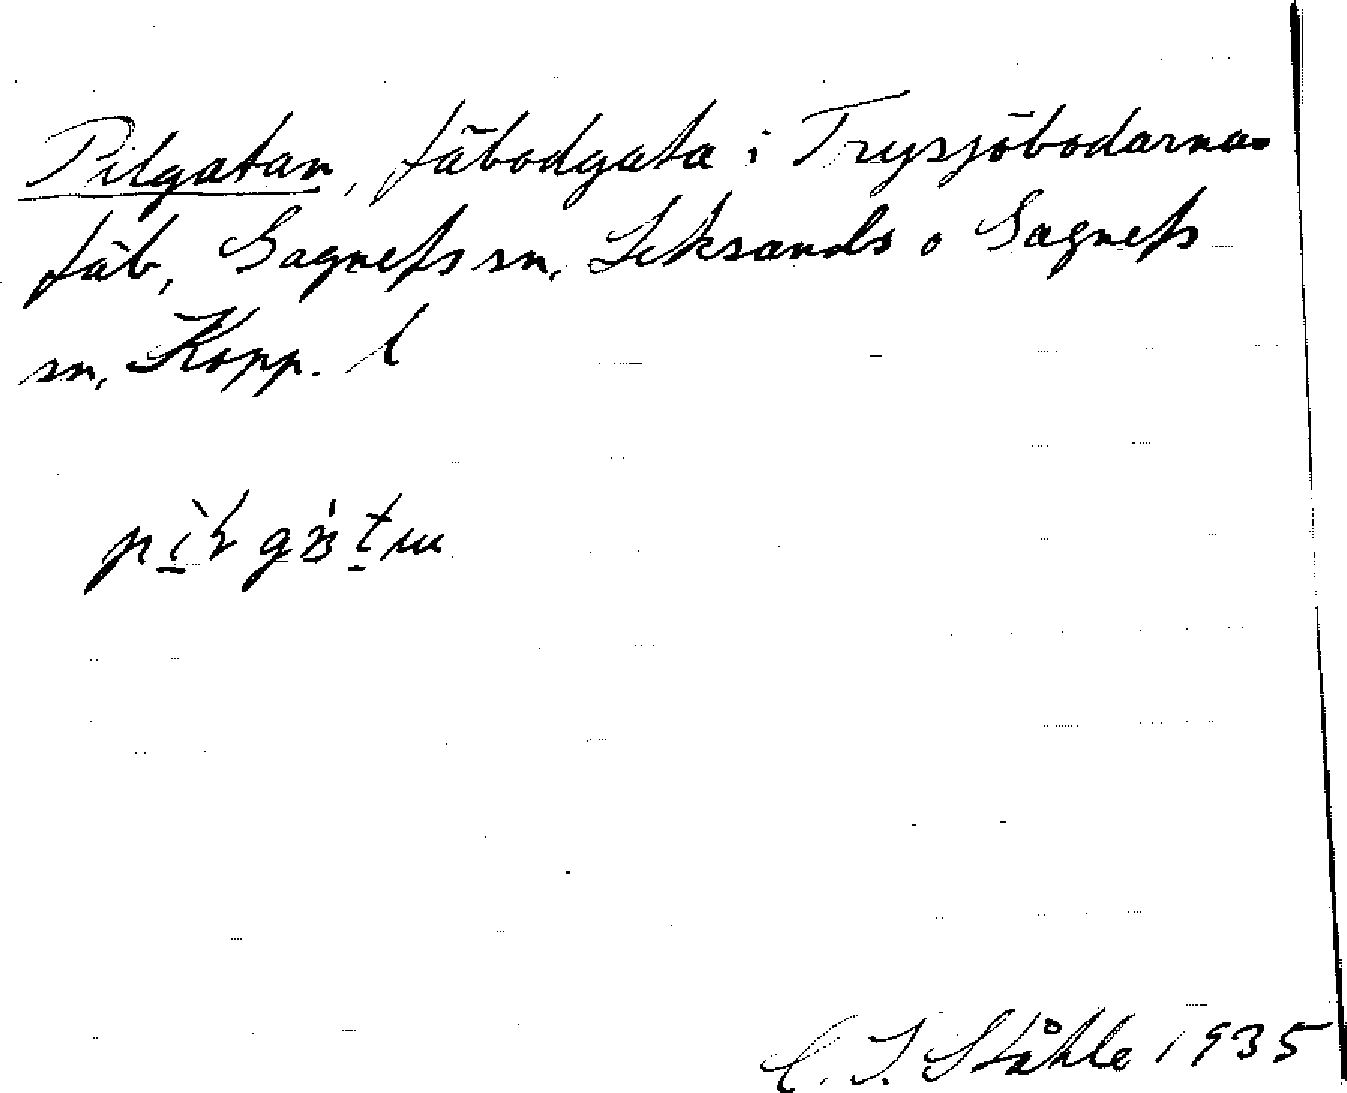 Pilgatan, fäbodgata i Trysjöbodarnas
fäb, Gagnefs sn, Leksands o Gagnefs
sn, Kopp. l
C. I. Ståhle 1935